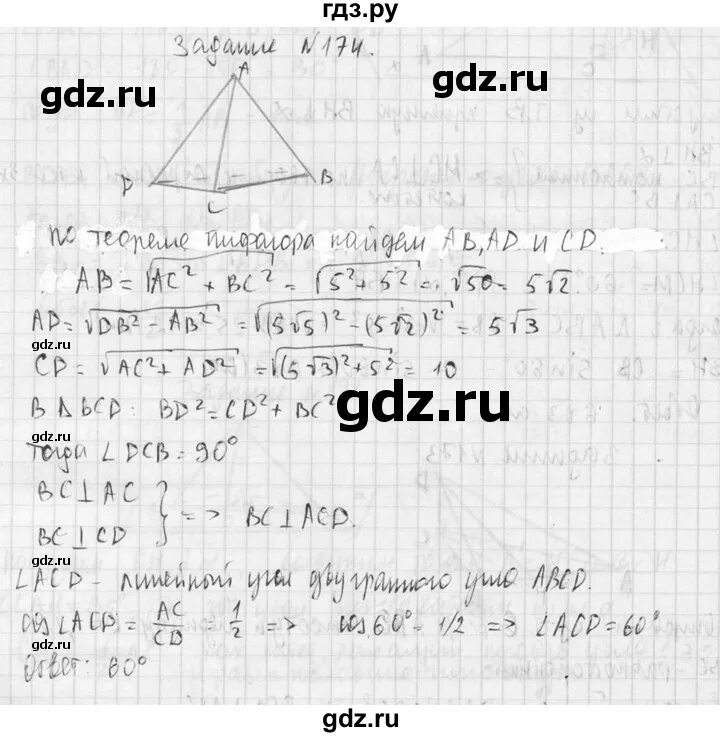 гдз.ру
Задание №174.
gdz.ru gdz.ru
A
D
B
C
По теореме Пифагора найдем AB, AD и CD.
AB = √AC² + BC² = √5² + 5² = √50 = 5√2.
AD = √DB² - AB² = √(5√5)² - (5√2)² = 5√3
CD = √AC² + AD² = √(5√3)² + 5² = 10
В ΔBCD: BD² = CD² + BC²
gdz.ru
тогда ∠DCB = 90°
BC ⊥ AC
BC ⊥ CD
} => BC ⊥ ACD.
gdz.ru
gdz.ru
∠ACD - линейный угол двугранного угла ABCD.
cos ∠ACB = AC/CD = 1/2 => cos 60° = 1/2 => ∠ACD = 60°
Ответ: 60°
gdz.ru
gdz.ru
gdz.ru